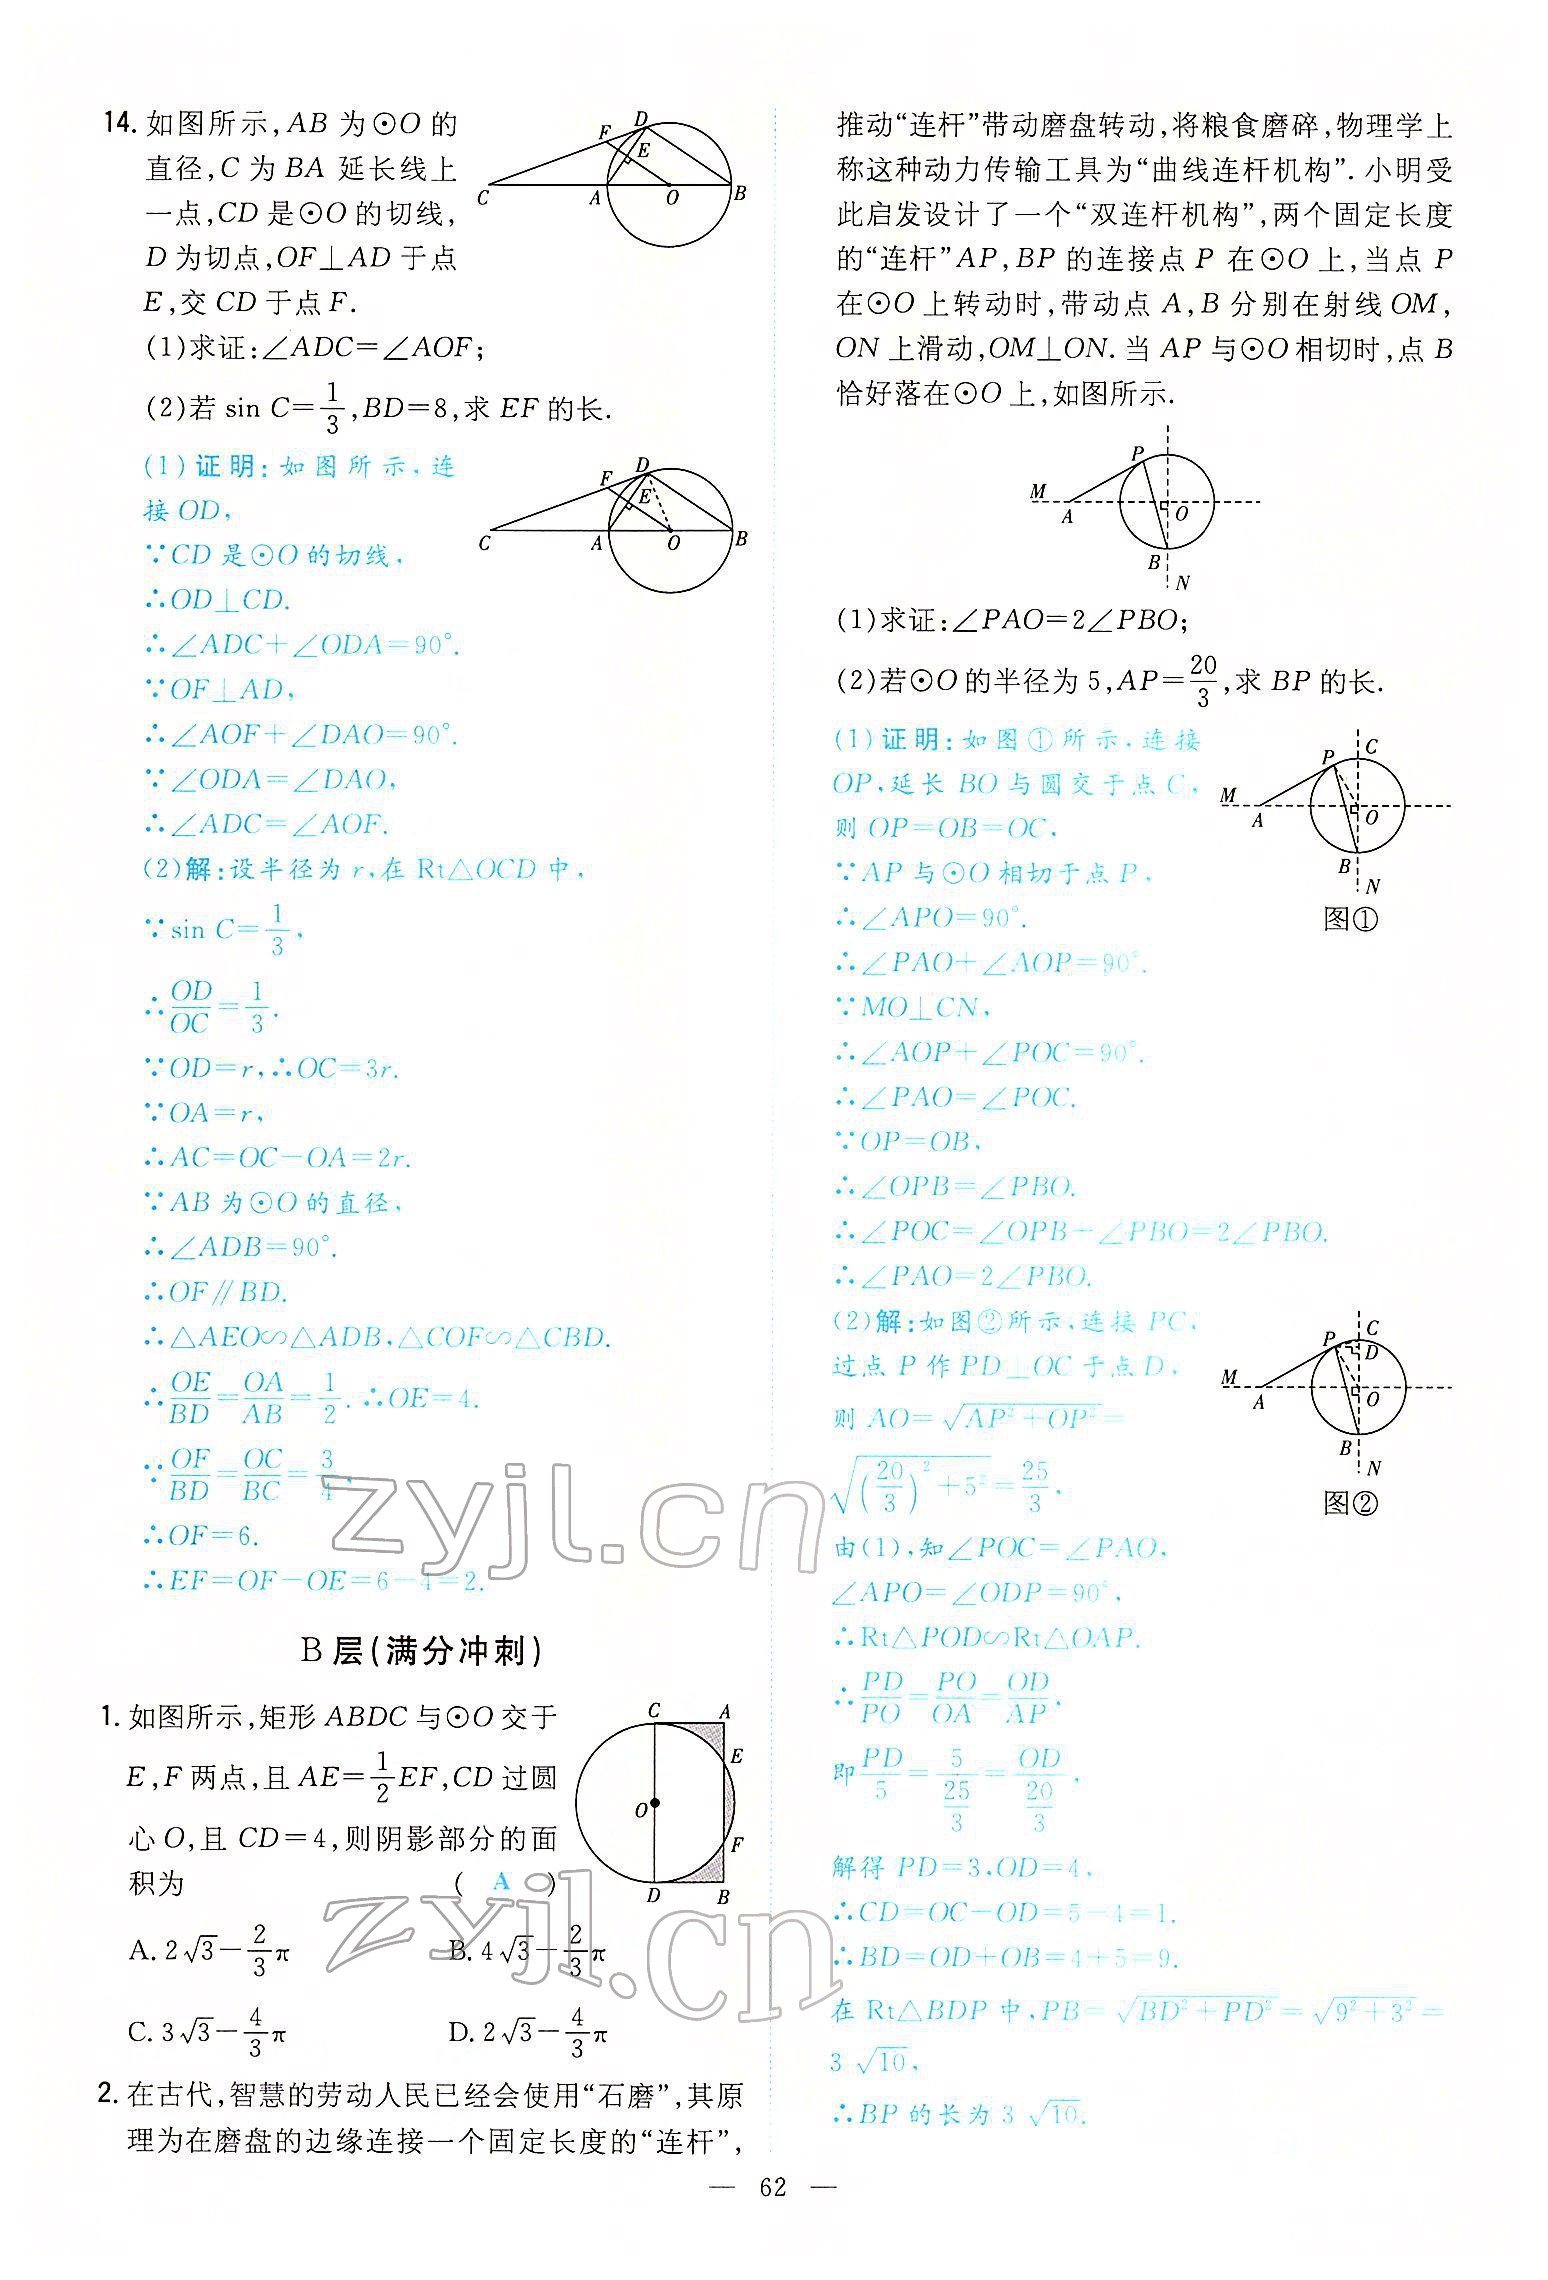 14. 如图所示,AB 为⊙O 的
直径,C 为 BA 延长线上
一点,CD 是⊙O 的切线,
D 为切点,OF⊥AD 于点
E,交 CD 于点 F.
(1)求证:∠ADC=∠AOF;
(2)若 sin C=1/3,BD=8,求 EF 的长.
C A O B D E F
(1)证明:如图所示,连
接 OD,
∵CD 是⊙O 的切线,
∴OD⊥CD.
∴∠ADC+∠ODA=90°.
∵OF⊥AD,
∴∠AOF+∠DAO=90°.
∵∠ODA=∠DAO,
∴∠ADC=∠AOF.
C A O B D E F
(2)解:设半径为 r,在 Rt△OCD 中,
∵sin C=1/3,
∴OD/OC=1/3.
∵OD=r,∴OC=3r.
∵OA=r,
∴AC=OC-OA=2r.
∵AB 为⊙O 的直径,
∴∠ADB=90°.
∴OF∥BD.
∴△AEO∽△ADB,△COF∽△CBD.
∴OE/BD=OA/AB=1/2.∴OE=4.
∵OF/BD=OC/BC=3/4,
∴OF=6.
∴EF=OF-OE=6-4=2.
B 层(满分冲刺)
1. 如图所示,矩形 ABDC 与⊙O 交于
E,F 两点,且 AE=1/2EF,CD 过圆
心 O,且 CD=4,则阴影部分的面
积为 ( A )
C A E O F D B
A. 2√3-2/3π B. 4√3-2/3π
C. 3√3-4/3π D. 2√3-4/3π
2. 在古代,智慧的劳动人民已经会使用“石磨”,其原
理为在磨盘的边缘连接一个固定长度的“连杆”,
推动“连杆”带动磨盘转动,将粮食磨碎,物理学上
称这种动力传输工具为“曲线连杆机构”.小明受
此启发设计了一个“双连杆机构”,两个固定长度
的“连杆”AP,BP 的连接点 P 在⊙O 上,当点 P
在⊙O 上转动时,带动点 A,B 分别在射线 OM,
ON 上滑动,OM⊥ON.当 AP 与⊙O 相切时,点 B
恰好落在⊙O 上,如图所示.
P M A O B N
(1)求证:∠PAO=2∠PBO;
(2)若⊙O 的半径为 5,AP=20/3,求 BP 的长.
(1)证明:如图①所示,连接
OP,延长 BO 与圆交于点 C,
则 OP=OB=OC.
∵AP 与⊙O 相切于点 P,
∴∠APO=90°.
∴∠PAO+∠AOP=90°.
∵MO⊥CN,
∴∠AOP+∠POC=90°.
∴∠PAO=∠POC.
∵OP=OB,
∴∠OPB=∠PBO.
∴∠POC=∠OPB+∠PBO=2∠PBO.
∴∠PAO=2∠PBO.
P C M A O B N
图①
(2)解:如图②所示,连接 PC,
过点 P 作 PD⊥OC 于点 D,
则 AO=√(AP²+OP²)=
√((20/3)²+5²)=25/3.
由(1),知∠POC=∠PAO,
∠APO=∠ODP=90°,
∴Rt△POD∽Rt△OAP.
∴PD/PO=PO/OA=OD/AP.
即PD/5=5/(25/3)=OD/(20/3),
解得 PD=3,OD=4,
∴CD=OC-OD=5-4=1.
∴BD=OD+OB=4+5=9.
在 Rt△BDP 中,PB=√(BD²+PD²)=√(9²+3²)=
3√10,
∴BP 的长为 3√10.
P C D M A O B N
图②
zyjl.cn
zyjl.cn
— 62 —